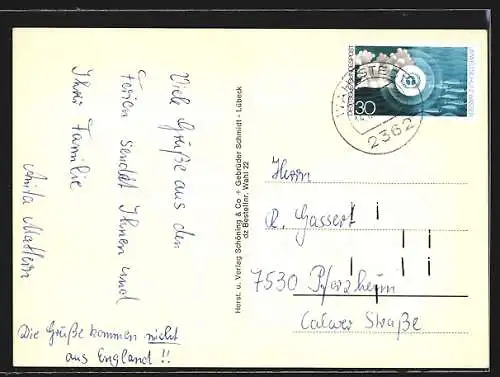 Viele Grüße aus den
Ferien sendet Ihnen und
Ihrer Familie
Anita Mattern
Die Grüße kommen nicht
aus England !!
Herst. u. Verlag Schöning & Co + Gebrüder Schmidt - Lübeck
dz Besteller, Wahl 22
30
WAHLSTEDT
2362
Herrn
R. Gassert
7530 Pforzheim
Calwer Straße